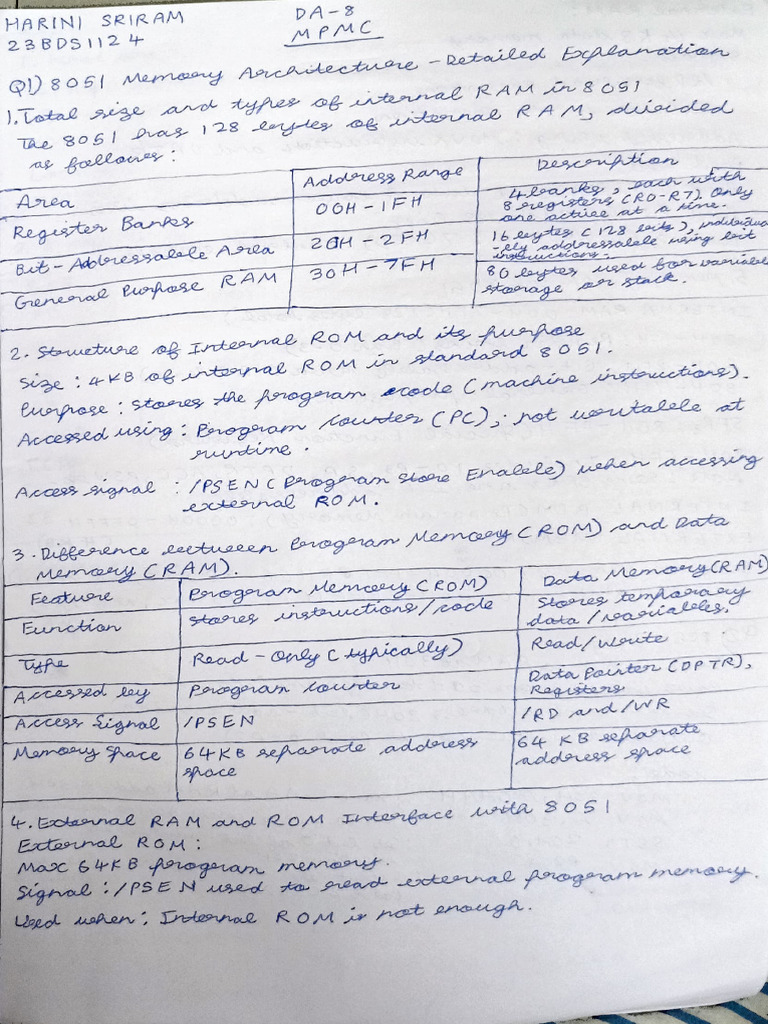 HARINI SRIRAM
DA-8
23BDS1124
MPMC
Q1) 8051 Memory Architecture - Detailed Explanation
1. Total size and types of internal RAM in 8051
The 8051 has 128 bytes of internal RAM, divided
as follows:
Area | Address Range | Description
Register Banks | 00H-1FH | 4 banks, each with
8 registers (R0-R7). Only
one active at a time.
Bit-Addressable Area | 20H-2FH | 16 bytes (128 bits), individua-
-ly addressable using bit
instructions.
General Purpose RAM | 30H-7FH | 80 bytes used for variable
storage or stack.
2. Structure of Internal ROM and its purpose
Size : 4KB of internal ROM in standard 8051.
Purpose : Stores the program code (machine instructions).
Accessed using : Program Counter (PC); not writable at
runtime.
Access signal : /PSEN (Program Store Enable) when accessing
external ROM.
3. Difference between Program Memory (ROM) and Data
Memory (RAM).
Feature | Program Memory (ROM) | Data Memory (RAM)
Function | Stores instructions/code | Stores temporary
data/variables.
Type | Read-Only (typically) | Read/Write
Accessed by | Program Counter | Data Pointer (DPTR),
Registers
Access Signal | /PSEN | /RD and /WR
Memory Space | 64KB separate address
space | 64 KB separate
address space
4. External RAM and ROM Interface with 8051
External ROM:
Max 64KB program memory.
Signal : /PSEN used to read external program memory.
Used when : Internal ROM is not enough.